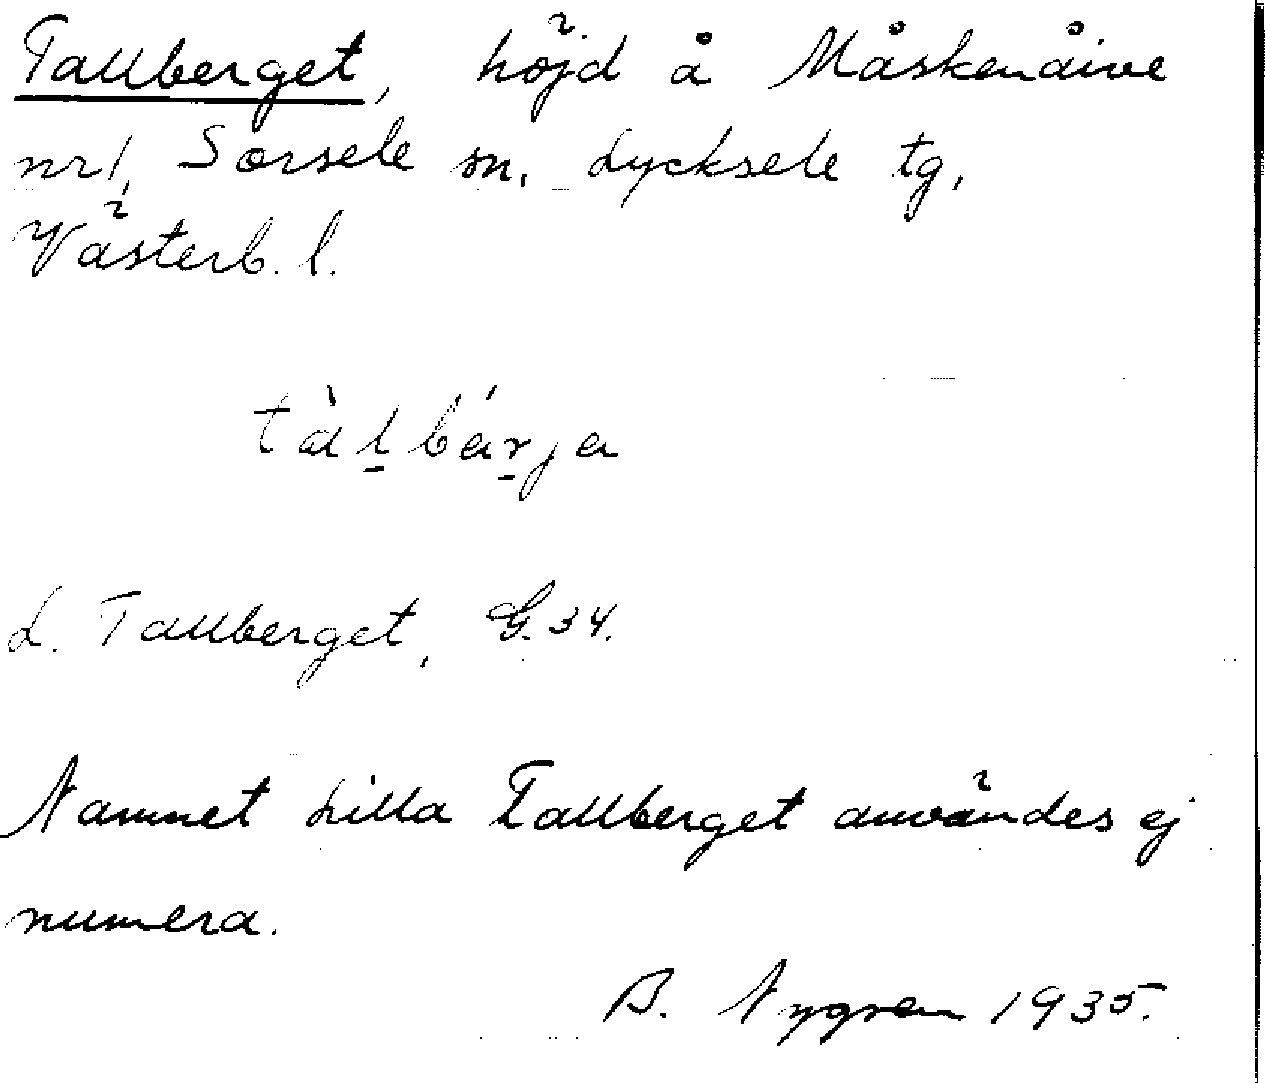 Tallberget, höjd å Måskenåive
nr 1, Sorsele sn. Lycksele tg,
Västerb. l.
tàḻbáṟja
L. Tallberget, G. 34.
Namnet Lilla Tallberget användes ej
numera.
B. Nygren 1935.